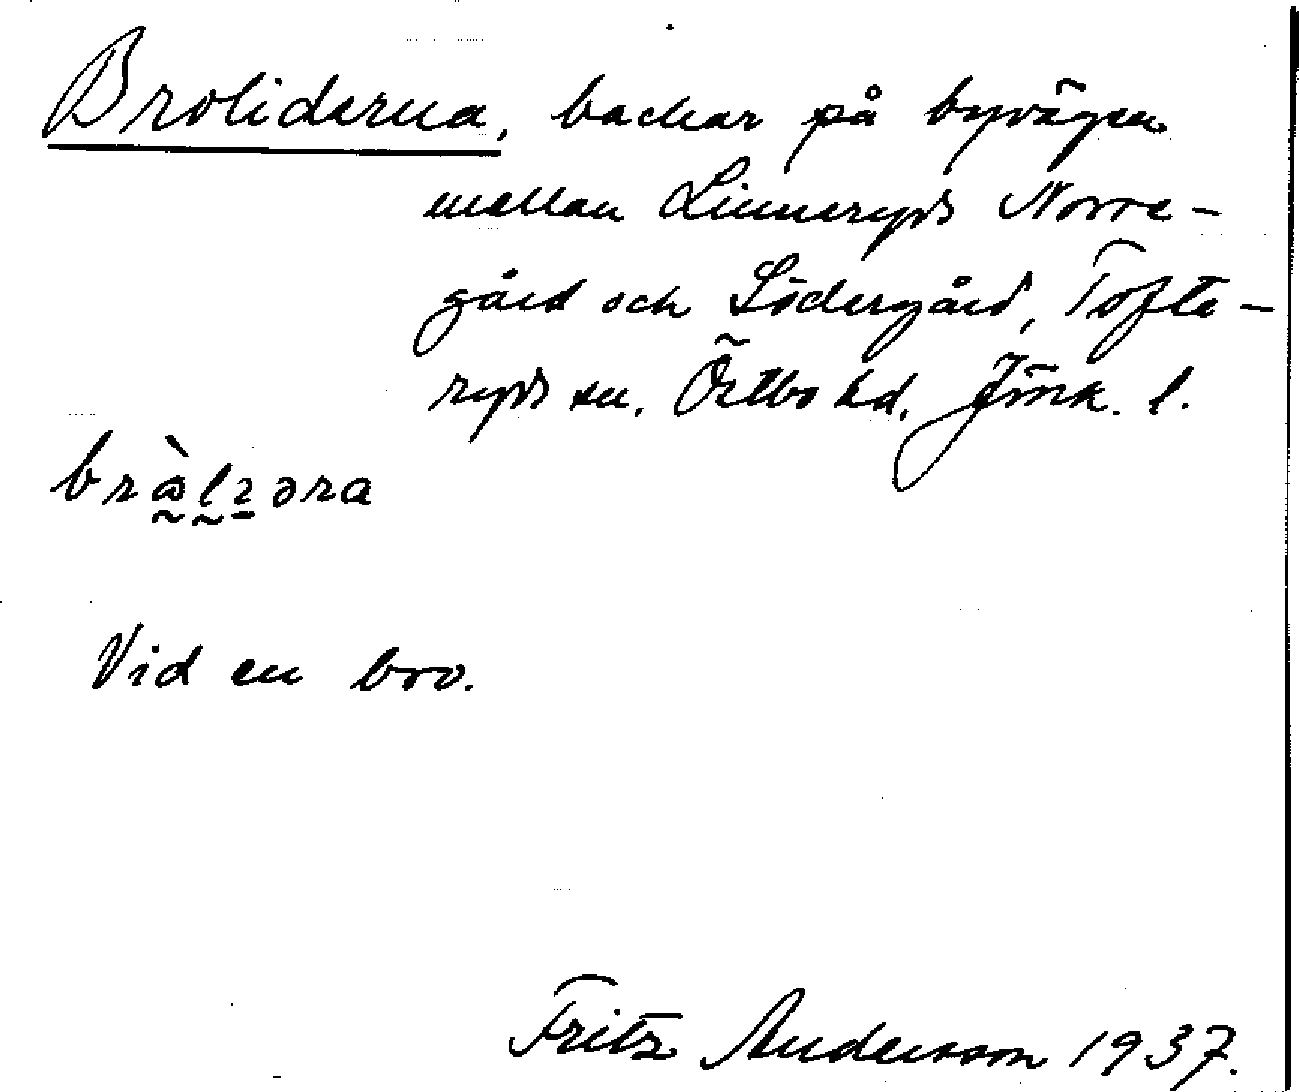 Broliderna, backar på byvägen
mellan Linneryds Norre-
gård och Södergård, Tofte-
ryds sn. Östbo hd. Jönk. l.
Vid en bro.
Fritz Anderson 1937.